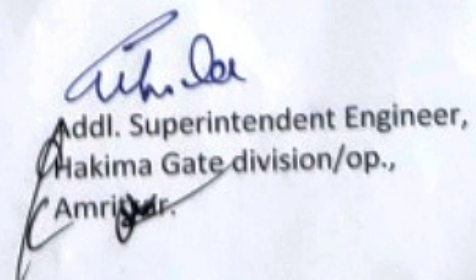 Addl. Superintendent Engineer,
Hakima Gate division/op.,
Amritsar.